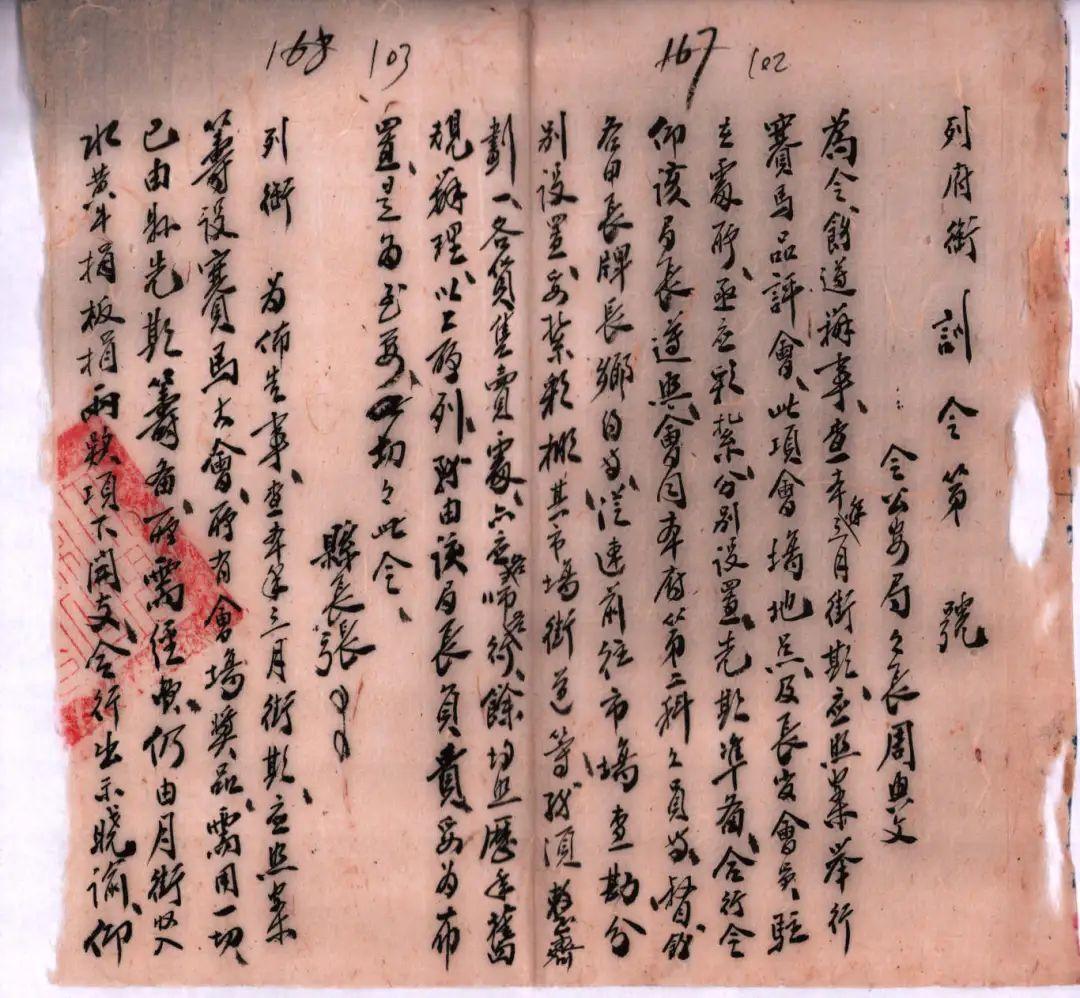 167 102
列府銜 訓令第 號
令公安局々長周典文
為令飭遵辦事、查本年三月街期、应照案举行
賽馬品評會、此項會塲地点、及長官會員駐
立處所、亟应彩紮分别設置、先期準備、合行令
仰该局長遵照、會同本府第二科々員等、督飭
各甲長牌長鄉約等、從速前往市塲查勘分
别設置、妥紮彩棚、其市塲街道等、務須整齊
劃一、各貨售賣處、亦應 行、餘均照歷年舊
規辦理、以上所列、務由该局長負責妥为布
置、是为至要、切々此令、
縣長張
168 103
列銜 为佈告事、查本年三月街期、应照案
籌設賽馬大會、所有會塲奬品、需用一切、
已由縣先期籌备、所需经費、仍由月街收入
水黄牛捐板捐兩欵項下開支、合行出示晓諭、仰